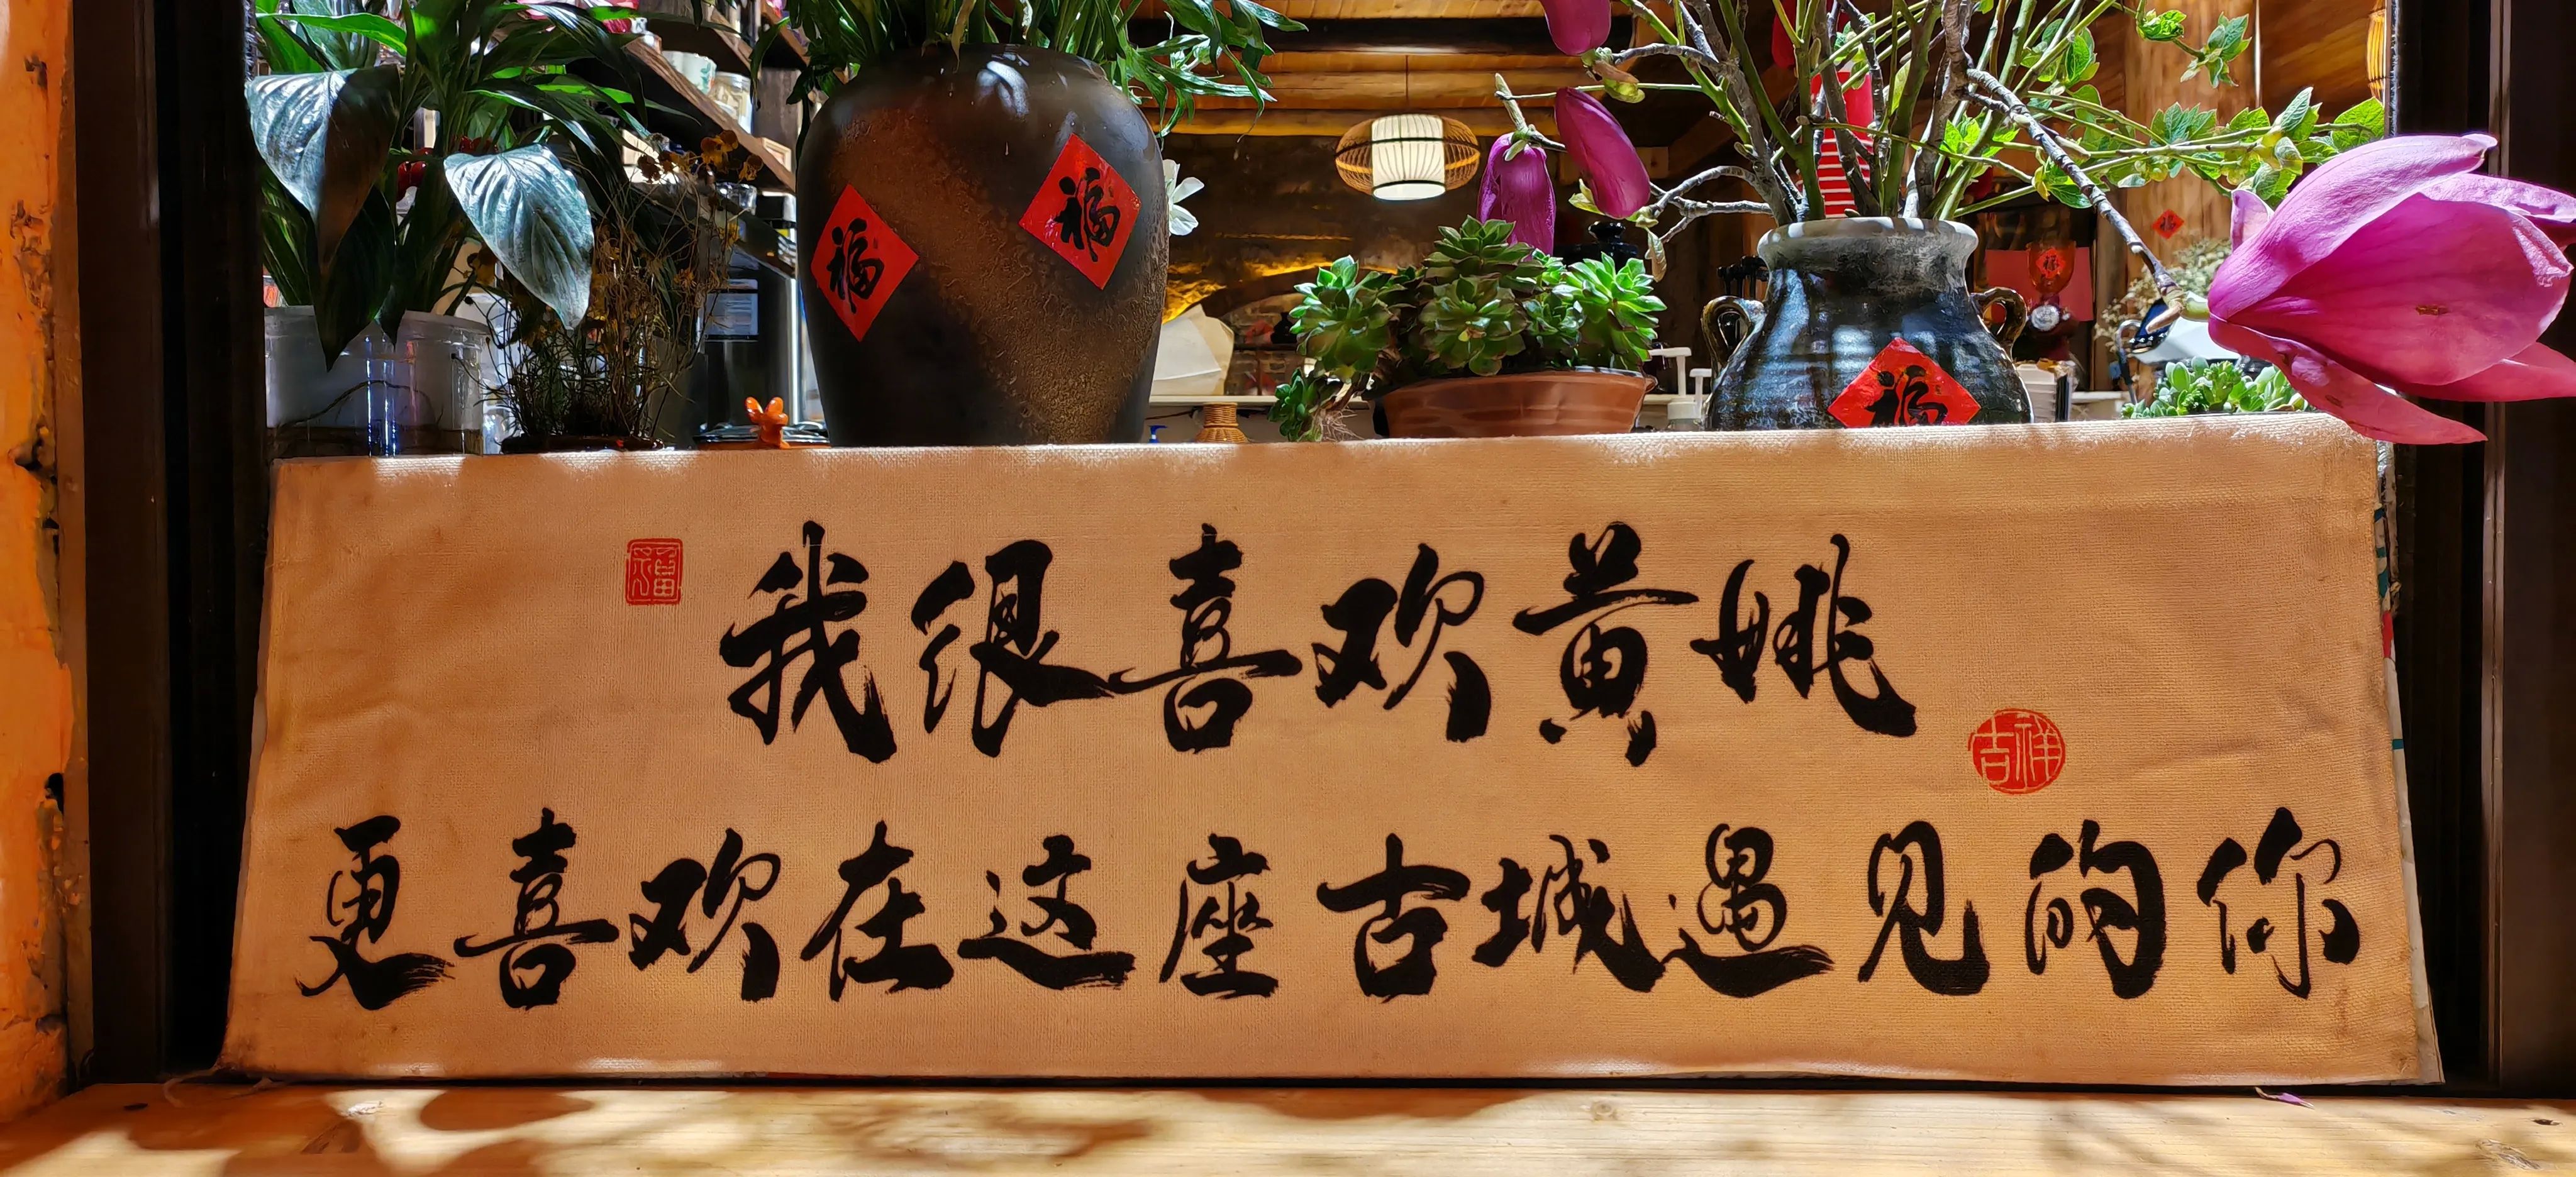 福
福
福
福
福
我很喜欢黄姚
吉祥
更喜欢在这座古城遇见的你